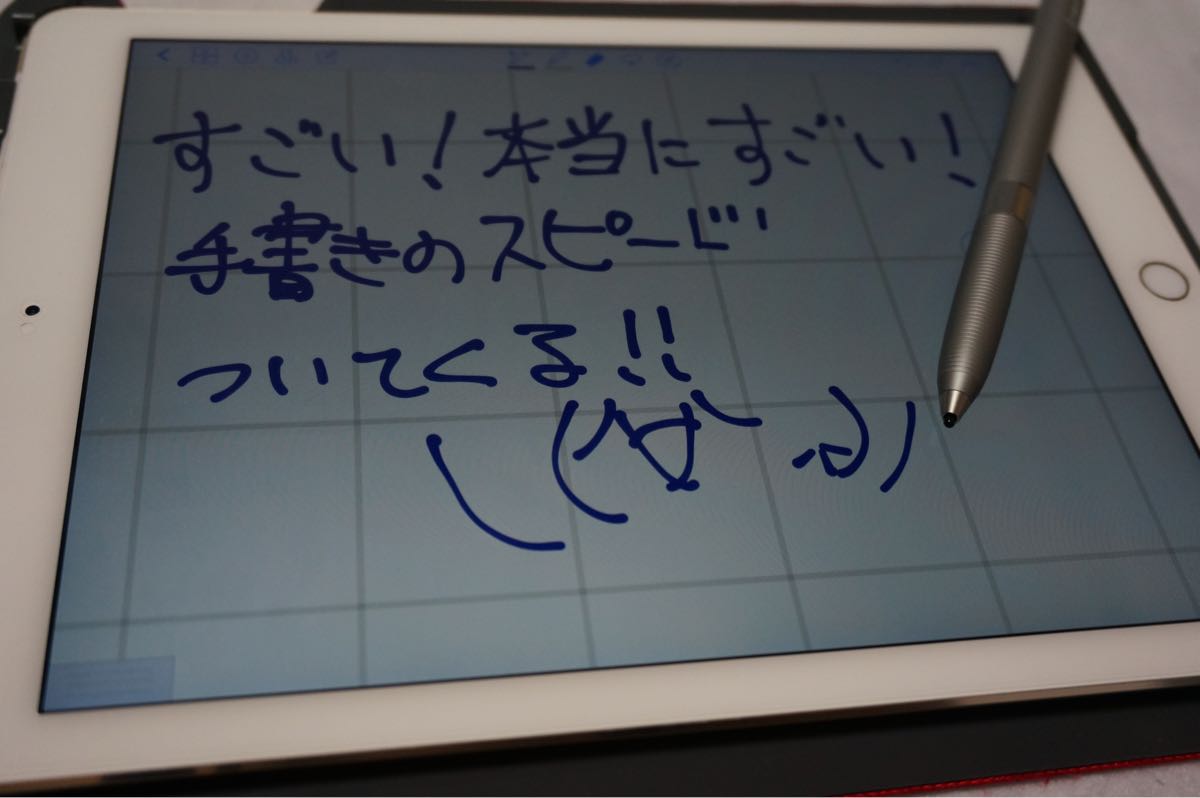 すごい!本当にすごい!
手書きのスピード
ついてくる!!